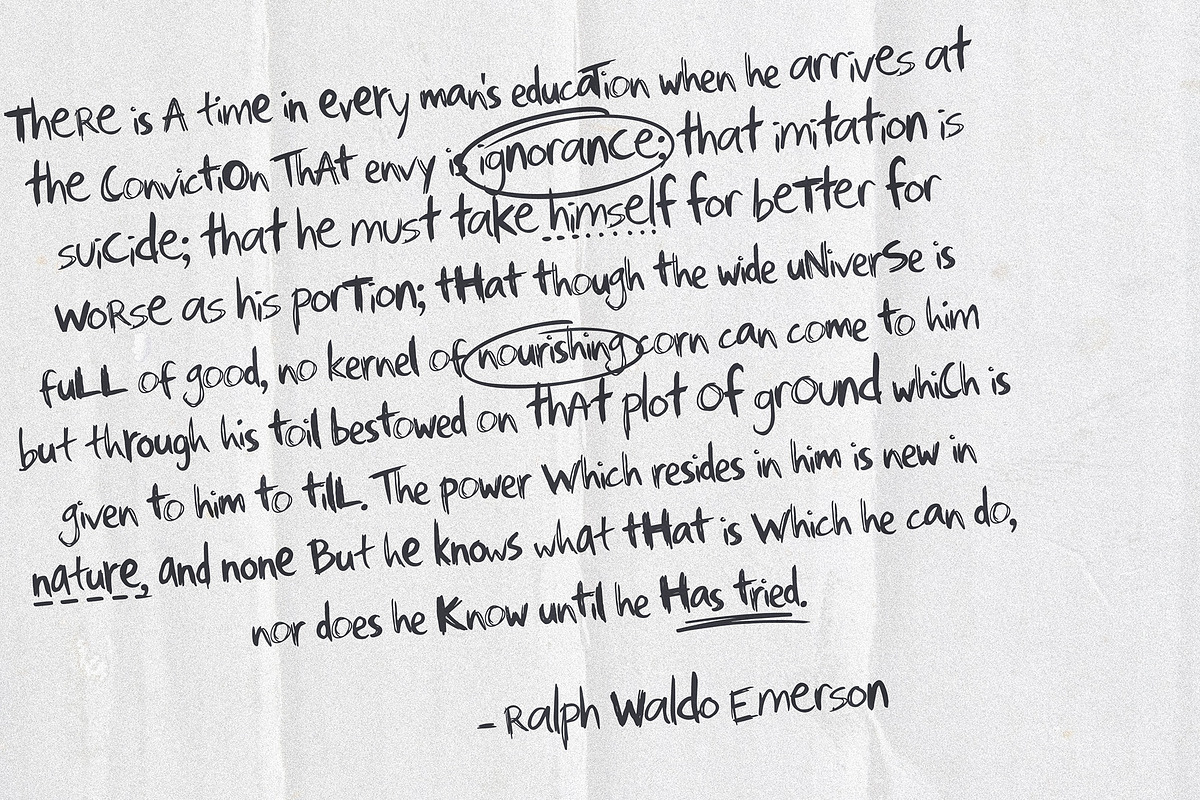 TheRe is A time in every man's educaTion when he arrives at
the ConvictiOn ThAt envy is ignorance; that imitation is
suicide; that he must take himself for beTTer for
woRse as his porTion; tHat though the wide uNiverSe is
fuLL of good, no kernel of nourishing corn can come to him
but through his toil bestowed on thAt plot of ground whiCh is
given to him to tilL. The power Which resides in him is new in
nature, and none But he knows what tHat is Which he can do,
nor does he Know until he Has tried.
- Ralph Waldo Emerson